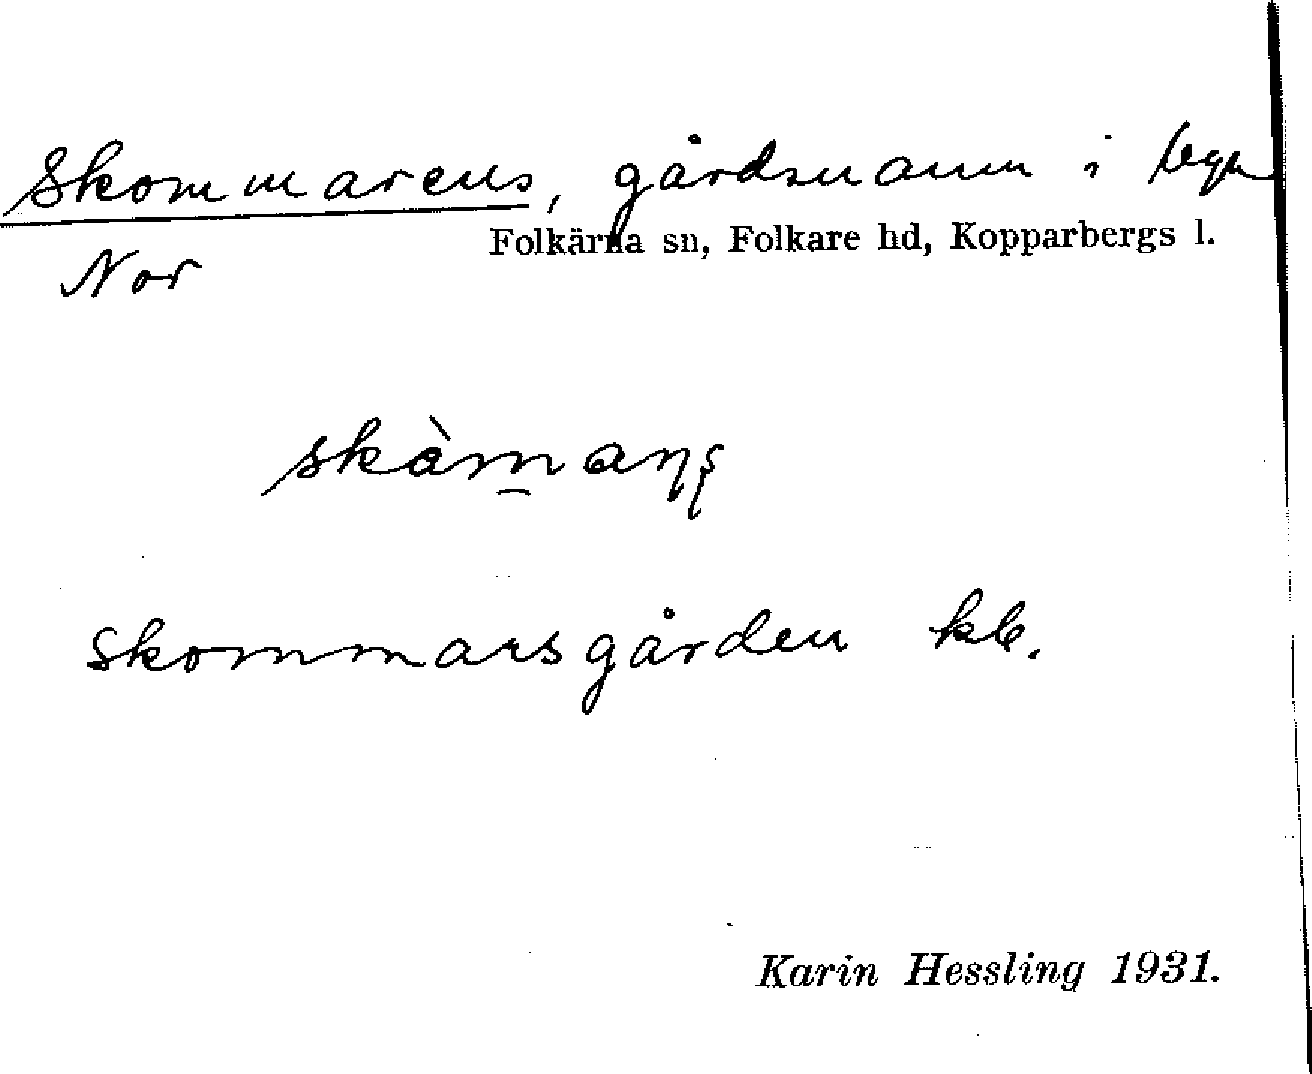 Skommarens, gårdsnamn i byn
Folkärna sn, Folkare hd, Kopparbergs l.
Nor
skommarsgården kb.
Karin Hessling 1931.